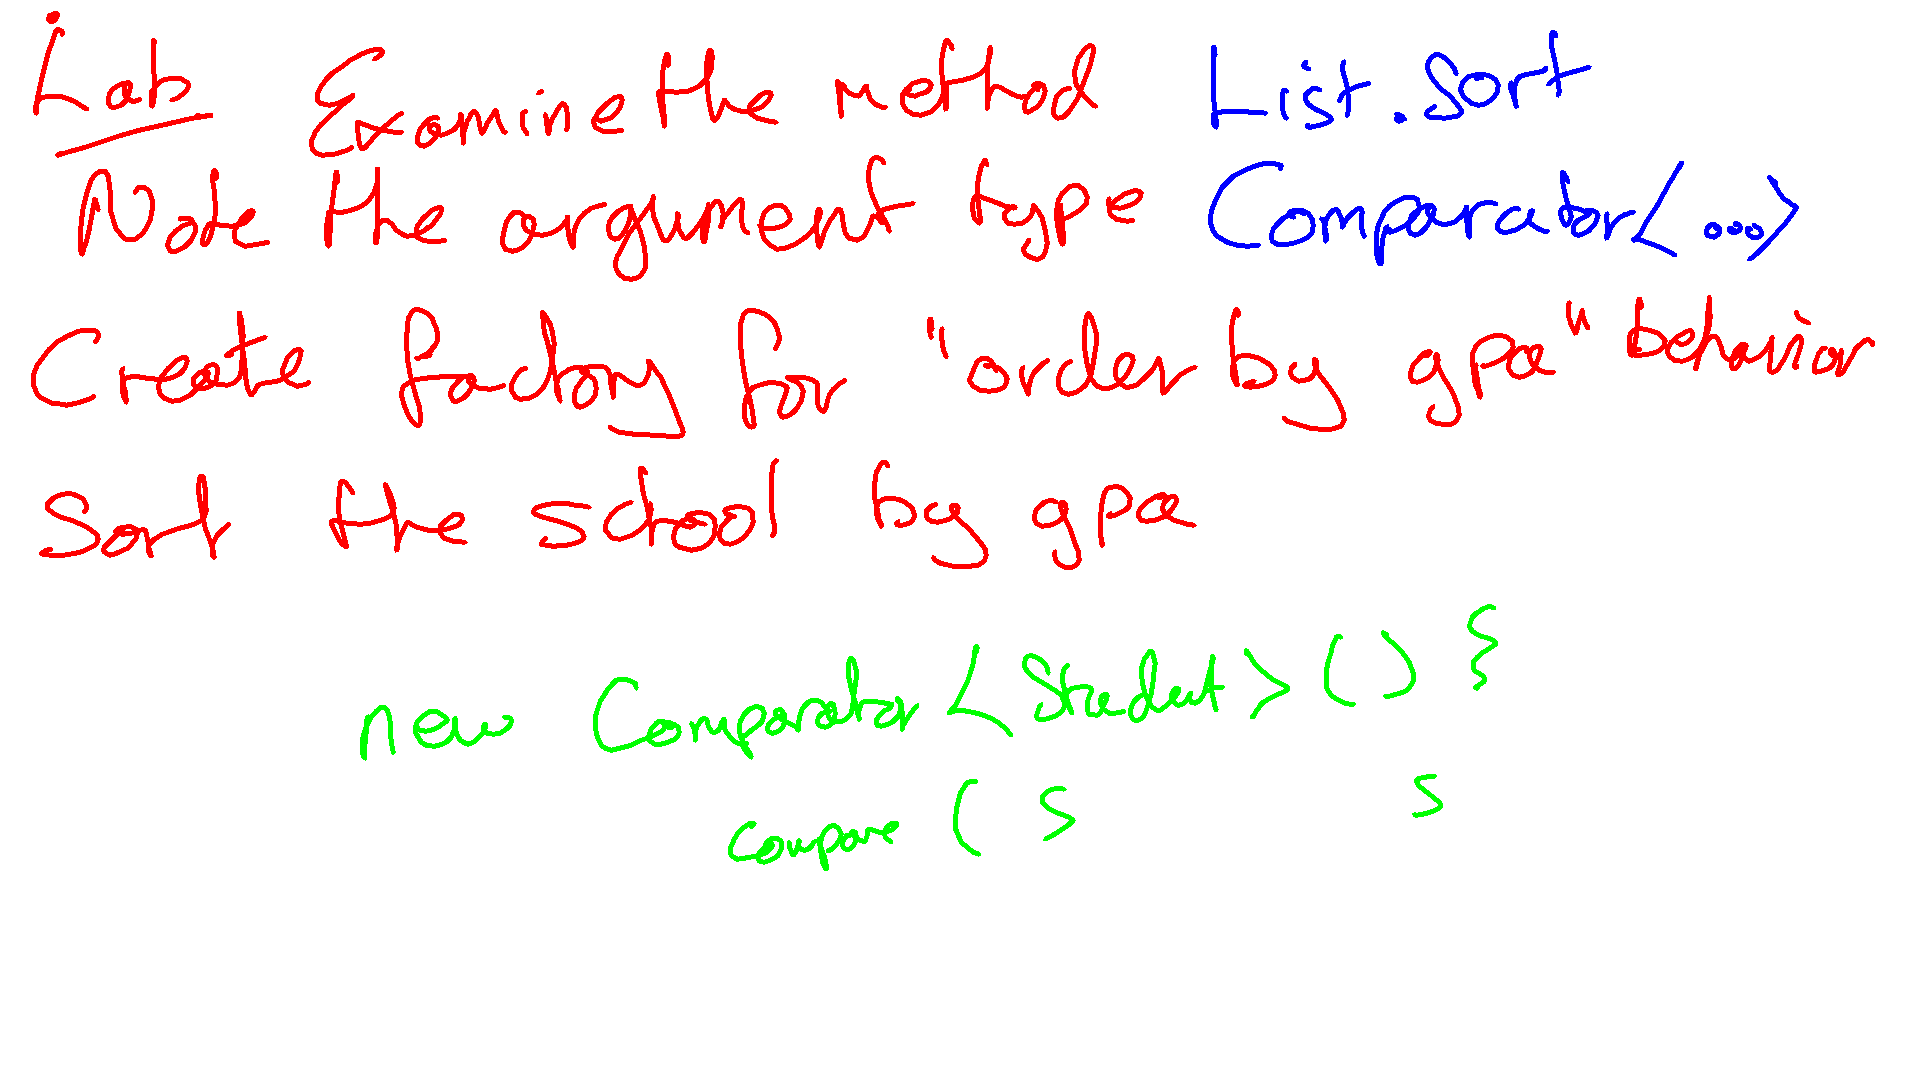 Lab Examine the method List.sort
Note the argument type Comparator<...>
Create factory for "order by gpa" behavior
Sort the school by gpa
new Comparator<Student>() {
compare ( S S